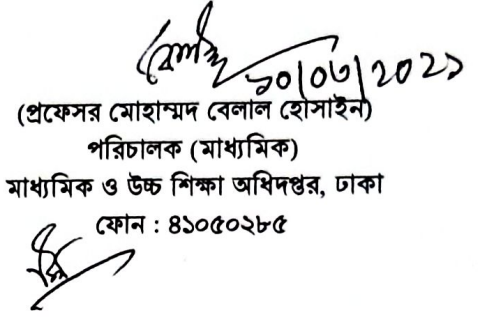 বেলাল ১০/০৩/২০২১
(প্রফেসর মোহাম্মদ বেলাল হোসাইন)
পরিচালক (মাধ্যমিক)
মাধ্যমিক ও উচ্চ শিক্ষা অধিদপ্তর, ঢাকা
ফোন : ৪১০৫০২৮৫